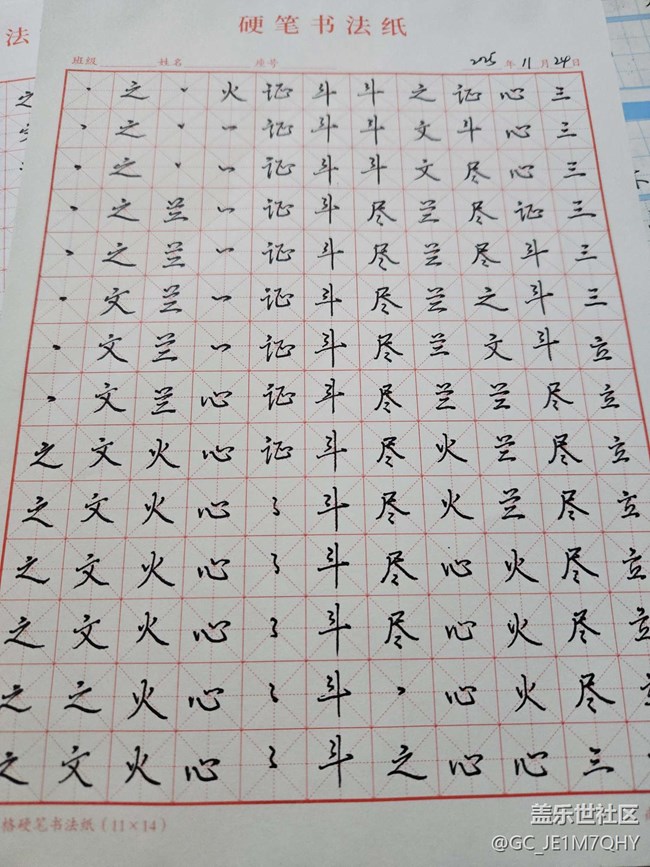 法
硬笔书法纸
班级 姓名 座号 2025年11月24日
丶 之 火 证 斗 斗 之 证 心 三
丶 之 证 斗 斗 文 斗 心 三
丶 之 证 斗 斗 文 尽 心 三
丶 之 兰 证 斗 尽 兰 尽 证 三
丶 之 兰 证 斗 尽 兰 尽 斗 三
丶 文 兰 证 斗 尽 兰 之 斗 三
丶 文 兰 证 斗 尽 兰 文 斗 立
丶 文 兰 心 证 斗 尽 兰 兰 尽 立
之 文 火 心 证 斗 尽 火 兰 尽 立
之 文 火 心 斗 尽 火 兰 尽 立
之 文 火 心 斗 尽 心 火 尽 立
之 文 火 心 斗 尽 心 火 尽 立
之 之 火 心 斗 丶 心 火 尽
之 文 火 心 斗 之 心 心 三
格硬笔书法纸(11×14)
盖乐世社区
@GC_JE1M7QHY